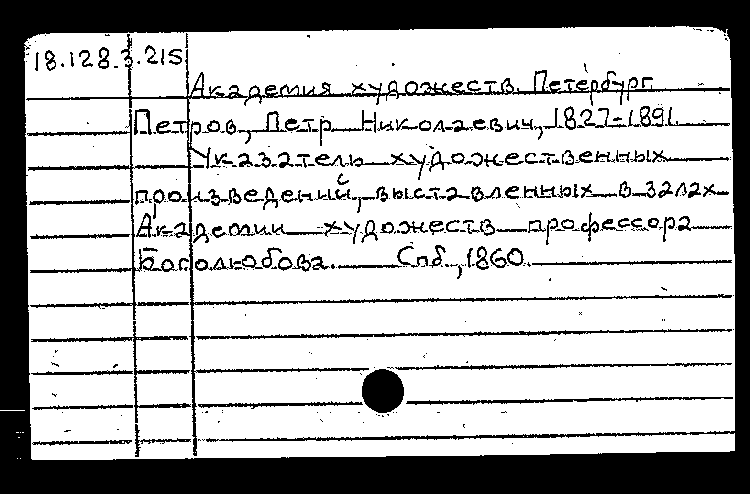 18.128.3.215
Академия художеств. Петербург.
Петров, Петр Николаевич, 1827-1891.
Указатель художественных
произведений, выставленных в залах
Академии художеств профессора
Боголюбова. Спб., 1860.